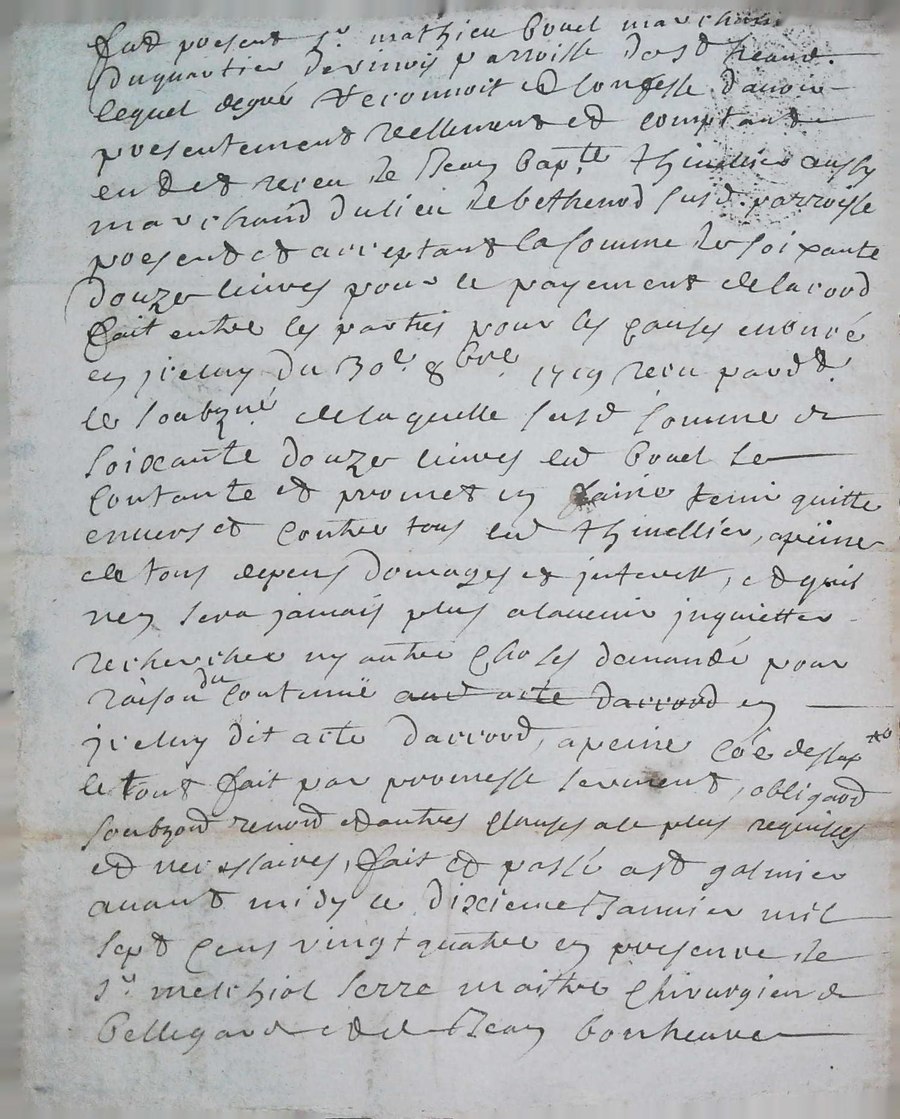 fut present sr mathieu bouel marchand
du quartier de viney parroisse de st heand.
lequel de gré reconnoit et confesse d'avoir
presentement reellement et comptant
eu et receu de Jean bapte thiuellier aussy
marchand du lieu de bethenod susd. parroisse
present et acceptant la somme de soixante
douze livres pour le payement de lacord
fait entre les parties pour les causes enoncé
en jceluy du 30e. 8bre. 1719 receu par
le soubzné de laquelle susd somme de
soixante douze livres led bouel se
contante et promet en faire tenir quitte
envers et contre tous led thiuellier, a peine
de tous depens domages et jnterest, et quil
nen sera jamais plus a lavenir jnquietter
rechercher ny autre choses demandé pour
raison du contenü aud acte daccord en
jceluy dit acte daccord, a peine coe dessus
le tout fait par promesse serment, obligaõn
soubzaõn renoñ et autres clauses a ce plus requises
et necessaires, fait et passé a st galmier
avant midy le dixieme Janvier mil
sept cens vingt quatre en presence de
sr. melchiol serre maitre chirurgien de
bellegarde et de Jean bonheure